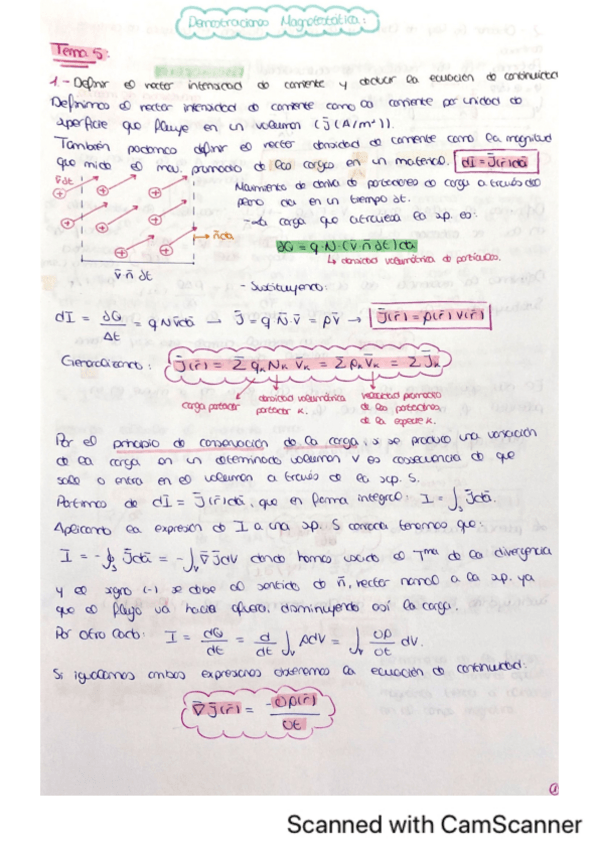 Demostraciones Magnetostática:
Tema 5:
1.- Definir el vector intensidad de corriente y deducir la ecuación de continuidad
Definimos el vector intensidad de corriente como la corriente por unidad de
superficie que fluye en un volumen (J̄ (A/m²)).
También podemos definir el vector densidad de corriente como la magnitud
que mide el mov. promedio de las cargas en un material. dI = J̄(r̄)dā
v̄dt
Movimiento de deriva de portadores de carga a través del
en un tiempo dt.
la carga que atraviesa la sp. es:
n̄da
∂Q = q·N·(v̄·n̄ dt) da
↳ densidad volumétrica de partículas.
v̄ n̄ dt
- Sustituyendo:
dI = ∂Q/Δt = qNv̄dā → J̄ = q N̄·v̄ = ρv̄ → J̄(r̄) = ρ(r̄) v(r̄)
Generalizando: J̄(r̄) = Σ qₖ Nₖ v̄ₖ = Σ ρₖ v̄ₖ = Σ J̄ₖ
carga portador
densidad volumétrica
portador k.
velocidad promedio
de las partículas
de la especie k.
Por el principio de conservación de la carga, si se produce una variación
de la carga en un determinado volumen V es consecuencia de que
sale o entra en el volumen a través de la sup. S.
Partimos de dI = J̄(r̄)dā, que en forma integral: I = ∫ₛ J̄dā.
Aplicando la expresión de I a una sp. S cerrada tenemos que:
I = -∮ₛ J̄dā = -∫ᵥ ∇̄ J̄dV donde hemos usado el Tᵐᵃ de la divergencia
y el signo (-) se debe al sentido de n̄, vector normal a la sp. ya
que el flujo va hacia afuera, disminuyendo así la carga.
Por otro lado: I = dQ/dt = d/dt ∫ᵥ ρdV = ∫ᵥ ∂ρ/∂t dV.
Si igualamos ambas expresiones obtenemos la ecuación de continuidad:
∇̄ J̄(r̄) = -∂ρ(r̄)/∂t
1
Scanned with CamScanner